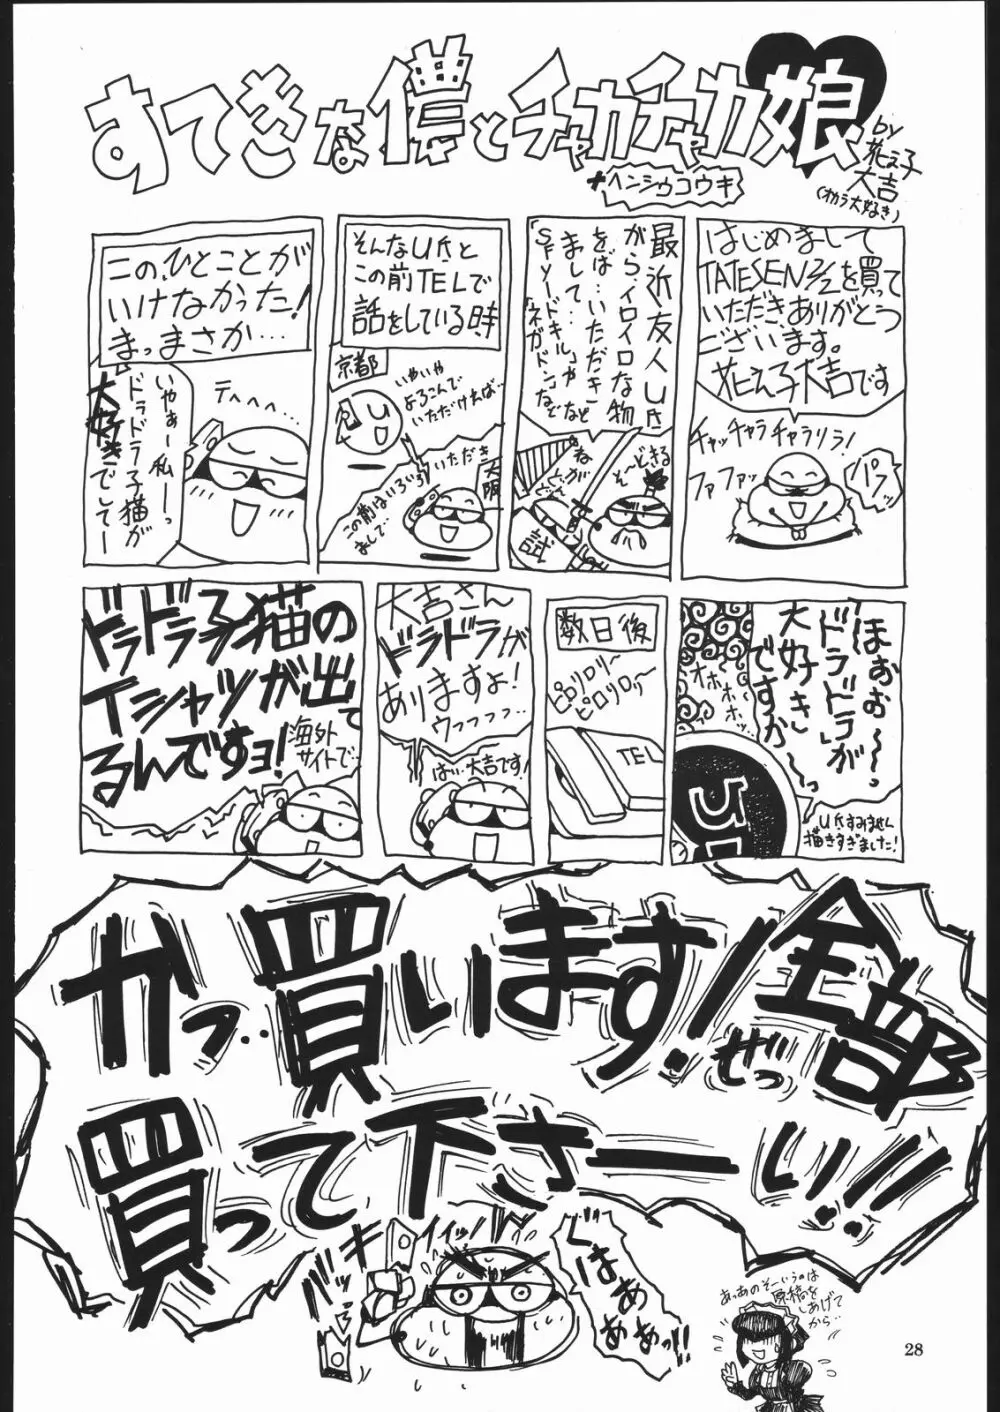 すてきな儂とチャカチャカ娘
+ヘンシウコウキ
by
花え子
大吉
(オカラ大好き)
はじめまして
TATESEN2/2を買って
いただきありがとう
ございます。
花え子大吉です
チャッチャラチャラリラ!
ファファッ
パフッ
最近友人U氏
がら、イロイロな物
をば…いただき
まして…
「SFソードキル」や
「ネガドン」などなど
そ〜どきる
ねが
どん
試
そんなU氏と
この前TELで
話をしている時、
京都
U
いやいや
よろこんで
いただければ…
大阪
いただき
この前はいろいろ
まして…
この、ひとことが
いけなかった!
まっまさか…
テヘヘヘ…
いやぁー私ーっ
ドラドラ子猫が
大好きでしてー
ほぉぉ〜っ
「ドラドラ」が
大好き
ですか〜っ
オホホホホッ
U氏すみません
描きすぎました!
数日後
ピロリロリ〜
ピロリロリ〜
TEL
大吉さん
ドラドラが
ありますよ!
ウッフッフッフ…
はい、大吉です!
ドラドラ子猫の
Tシャツが出て
るんですヨ!
海外
サイトで…
かっ‥買います!ぜっ全部
買って下さーい!!
イイッ!
ドキ
バッ
ぐはぁぁ
ああっ!!
あっあのそーいうのは
原稿を
しあげて
から…
28